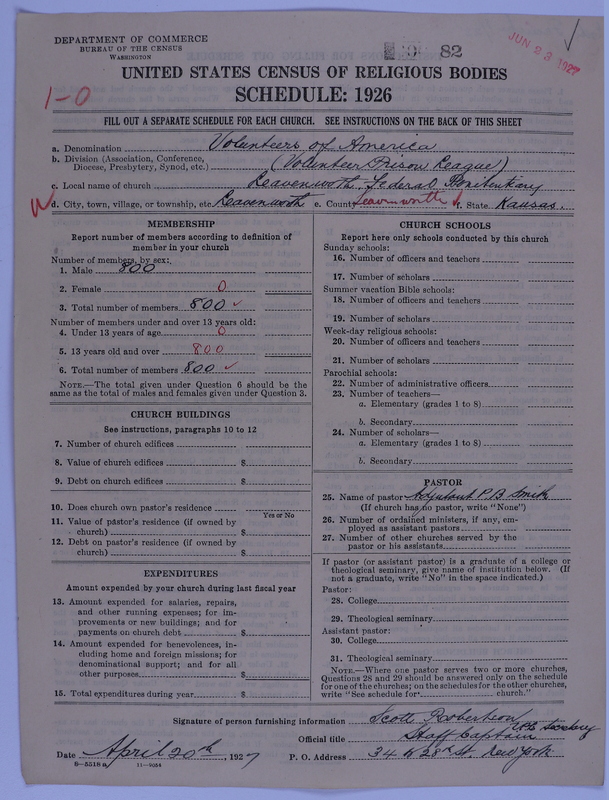 DEPARTMENT OF COMMERCE
BUREAU OF THE CENSUS
WASHINGTON
82
JUN 23 1927
UNITED STATES CENSUS OF RELIGIOUS BODIES
SCHEDULE: 1926
1-0
FILL OUT A SEPARATE SCHEDULE FOR EACH CHURCH. SEE INSTRUCTIONS ON THE BACK OF THIS SHEET
a. Denomination Volunteers of America
b. Division (Association, Conference, Diocese, Presbytery, Synod, etc.) (Volunteer Prison League)
c. Local name of church Leavenworth, Federal Penitentiary
d. City, town, village, or township, etc. Leavenworth e. County Leavenworth f. State Kansas.
MEMBERSHIP
Report number of members according to definition of
member in your church
Number of members, by sex:
1. Male 800
2. Female 0
3. Total number of members 800 ✓
Number of members under and over 13 years old:
4. Under 13 years of age 0
5. 13 years old and over 800
6. Total number of members 800 ✓
NOTE.—The total given under Question 6 should be the
same as the total of males and females given under Question 3.
CHURCH BUILDINGS
See instructions, paragraphs 10 to 12
7. Number of church edifices
8. Value of church edifices $
9. Debt on church edifices $
10. Does church own pastor's residence
Yes or No
11. Value of pastor's residence (if owned by
church) $
12. Debt on pastor's residence (if owned by
church) $
EXPENDITURES
Amount expended by your church during last fiscal year
13. Amount expended for salaries, repairs,
and other running expenses; for im-
provements or new buildings; and for
payments on church debt $
14. Amount expended for benevolences, in-
cluding home and foreign missions; for
denominational support; and for all
other purposes $
15. Total expenditures during year $
CHURCH SCHOOLS
Report here only schools conducted by this church
Sunday schools:
16. Number of officers and teachers
17. Number of scholars
Summer vacation Bible schools:
18. Number of officers and teachers
19. Number of scholars
Week-day religious schools:
20. Number of officers and teachers
21. Number of scholars
Parochial schools:
22. Number of administrative officers
23. Number of teachers—
a. Elementary (grades 1 to 8)
b. Secondary
24. Number of scholars—
a. Elementary (grades 1 to 8)
b. Secondary
PASTOR
25. Name of pastor Adjutant P. B. Smith
(If church has no pastor, write "None")
26. Number of ordained ministers, if any, em-
ployed as assistant pastors
27. Number of other churches served by the
pastor or his assistants
If pastor (or assistant pastor) is a graduate of a college or
theological seminary, give name of institution below. (If
not a graduate, write "No" in the space indicated.)
Pastor:
28. College
29. Theological seminary
Assistant pastor:
30. College
31. Theological seminary
NOTE.—Where one pastor serves two or more churches,
Questions 28 and 29 should be answered only on the schedule
for one of the churches; on the schedules for the other churches,
write "See schedule for church."
Signature of person furnishing information Scott Robertson
Official title Staff Captain Secretary
Date April 20th, 1927 P. O. Address 34 W 28th St. New York
8—5518a 11—9054